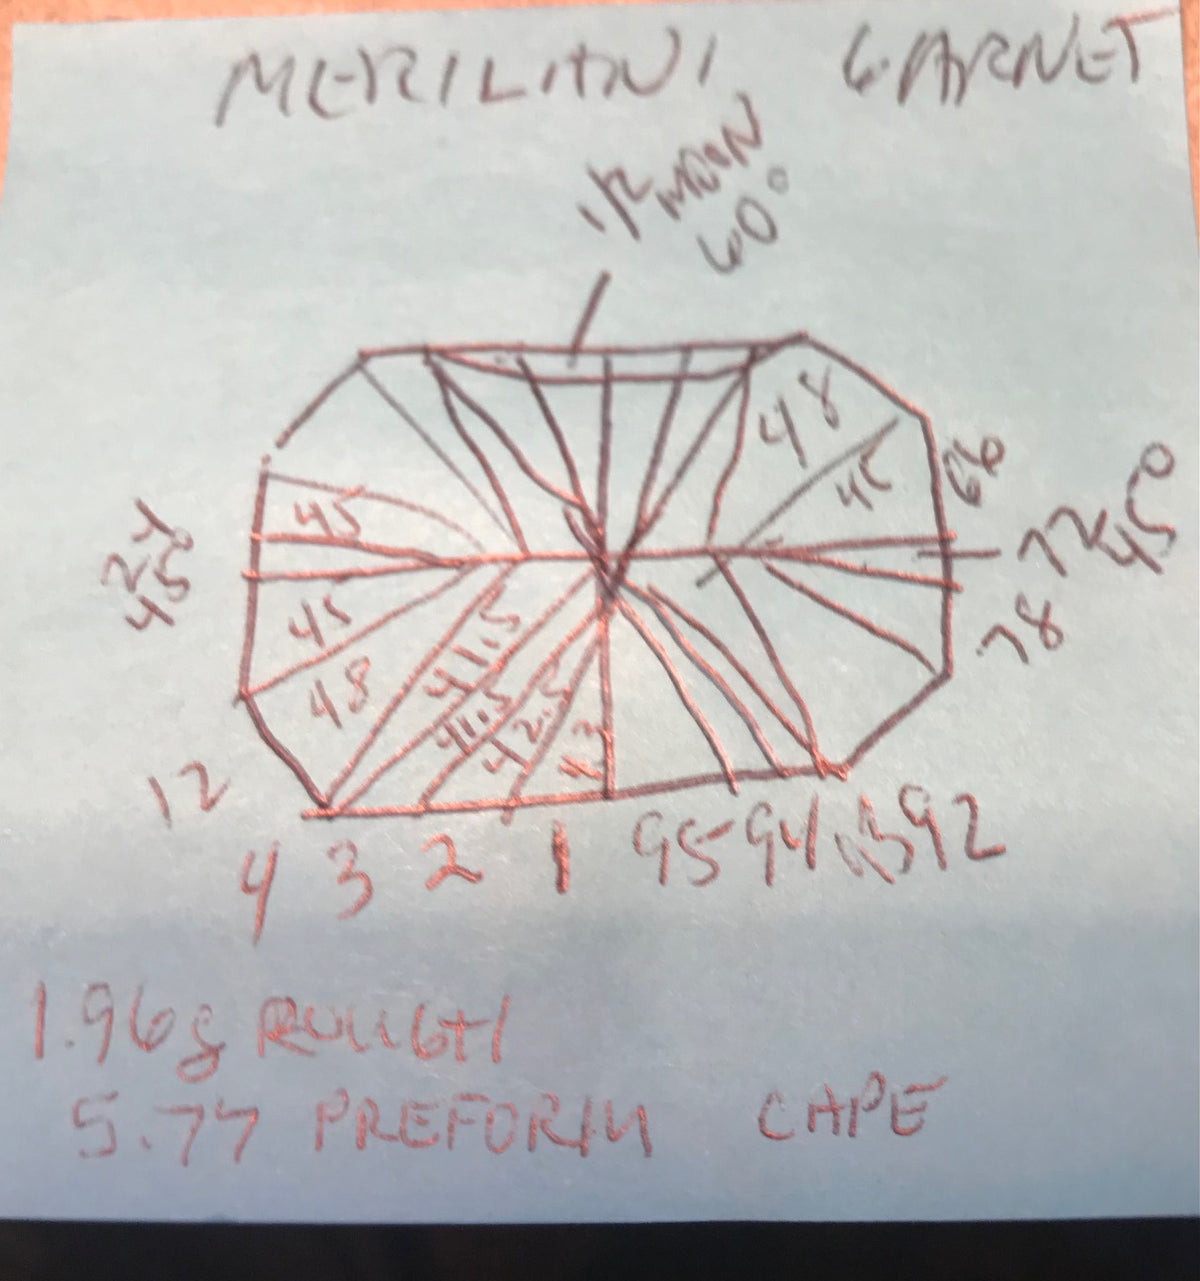 MERILANI GARNET
1/2 MOON
60°
48
45
66
45
24
45
72
45°
45
78
48
41.5
41.5
42.5
43
12
4 3 2 1 95 94 93 92
1.96g ROUGH
5.77 PREFORM CAPE